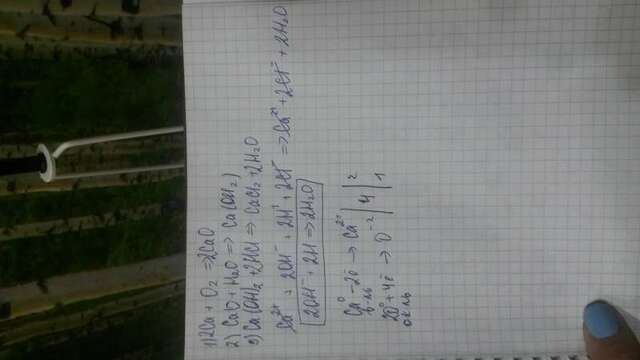 1) 2Ca + O₂ => 2CaO
2) CaO + H₂O => Ca(OH₂)
3) Ca(OH)₂ + 2HCl => CaCl₂ + 2H₂O
Ca²⁺ + 2OH⁻ + 2H⁺ + 2Cl⁻ => Ca²⁺ + 2Cl⁻ + 2H₂O
2OH⁻ + 2H => 2H₂O
Ca⁰ - 2ē → Ca²⁺ | 4 | 2
в-ль
2O⁰ + 4ē → O⁻² | | 1
ок-ль